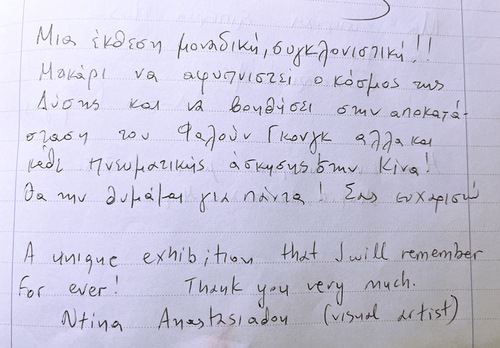 Μια έκθεση μοναδική, συγκλονιστική!!
Μακάρι να αφυπνιστεί ο κόσμος της
Δύσης και να βοηθήσει στην αποκατά-
σταση του Φαλούν Γκονγκ αλλα και
κάθε Πνευματικής άσκησης στην Κίνα!
Θα την θυμάμαι για πάντα! Σας ευχαριστώ
A unique exhibition that I will remember
For ever! Thank you very much.
Ntina Anastasiadou (visual artist)